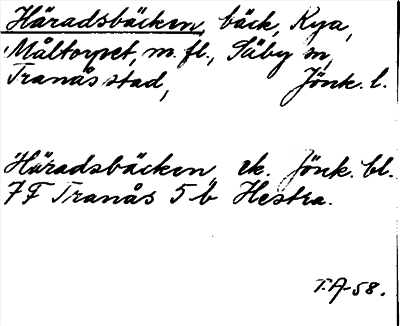 Häradsbäcken, bäck, Rya,
Måltorpet, m. fl., Säby sn,
Tranås stad, Jönk. l.
Häradsbäcken, ek. Jönk. bl.
7F Tranås 5b Hestra.
T.A-58.